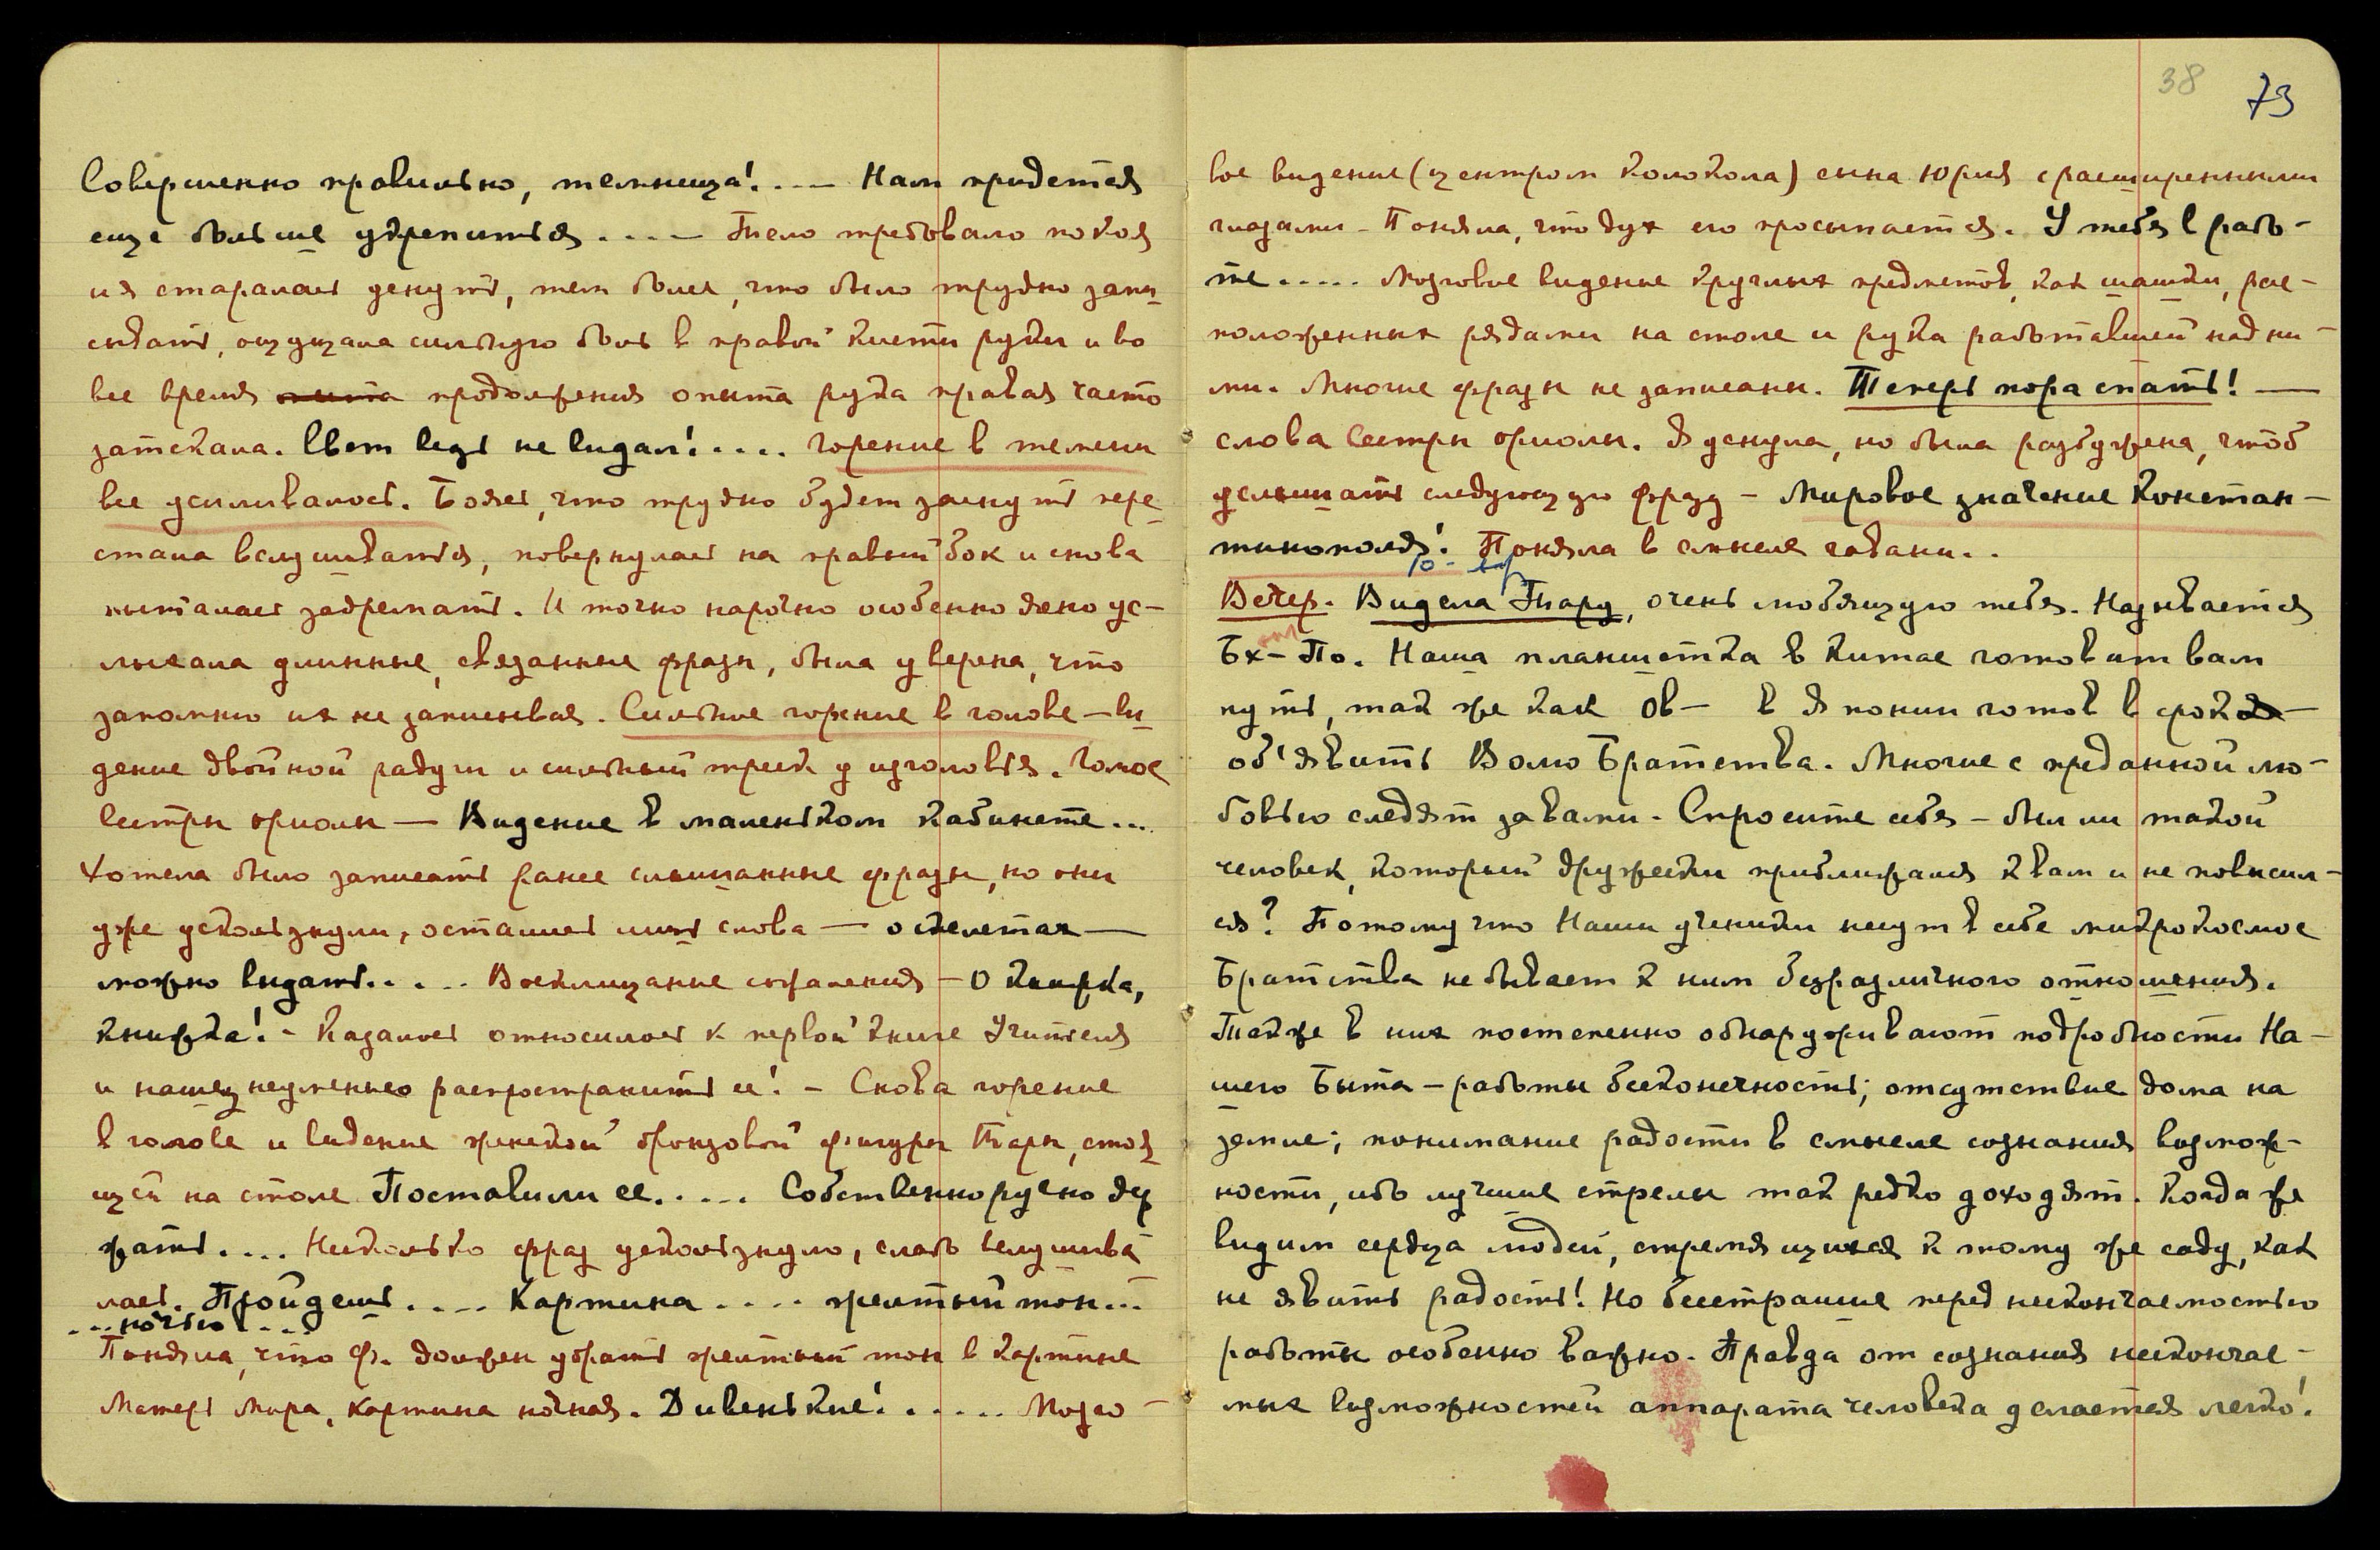 Совершенно правильно, темница!.... — Нам придется
еще больше укрепиться.... — Тело требовало покоя
и я старалась уснуть, тем более, что было трудно запи
сывать, ощущала сильную боль в правой кисти руки и во
все время опыта продолжения опыта рука правая часто
затекала. Свет ведь не видал!.... горение в темени
все усиливалось. Боясь, что трудно будет заснуть пере
стала вслушиваться, повернулась на правый бок и снова
пыталась задремать. И точно нарочно особенно ясно ус-
лыхала длинные, связанные фразы, была уверена, что
запомню их не записывая. Сильное горение в голове — ви
дение двойной радуги и сильный треск у изголовья. Голос
Сестры Ориолы — Видение в маленьком кабинете...
Хотела было записать ранее слышанные фразы, но они
уже ускользнули, остались лишь слова — о скелетах —
можно видать..... Восклицание сожаления — О книжка,
книжка! - Казалось относилось к первой книге Учителя
и нашему неумению распространить ее! - Снова горение
в голове и видение женской бронзовой фигуры Тары, стоя
щей на столе Поставили ее..... Собственноручно де
жать.... Несколько фраз ускользнуло, слабо вслушива
лась. Пройдешь.... Картина.... желтый тон...
...ночью...
Поняла, что Ф. должен убрать желтый тон в картине
Матерь Мира, картина ночная. Дивенькие!..... Мозго-
38
73
вое видение (центром колокола) сына Юрия с расширенными
глазами - Поняла, что дух его просыпается. У тебя в рабо-
те..... Мозговое видение круглых предметов, как шашки, рас-
положенных рядами на столе и рука работавшей над ни-
ми. Многие фразы не записаны. Теперь пора спать! —
слова Сестры Ориолы. Я уснула, но была разбужена, чтоб
услышать следующую фразу - Мировое значение Констан-
тинополя! Поняла в смысле гавани..
Вечер. Видела Тару, очень любящую тебя. Называется
Бх- По. Наша планшетка в Китае готовит вам
путь, так же как Ов— в Японии готов в срок
об'явить Волю Братства. Многие с преданной лю-
бовью следят за вами. Спросите себя - был ли такой
человек, который дружески приблизился к вам и не повысил-
ся? Потому что Наши ученики несут в себе микрокосмос
Братства не бывает к ним безразличного отношения.
Также в них постепенно обнаруживают подробности На-
шего Быта - работы бесконечность; отсутствие дома на
земле; понимание радости в смысле сознания возмож-
ности, ибо лучшие стрелы так редко доходят. Когда же
видим сердца людей, стремящихся к тому же саду, как
не явить радость! Но бесстрашие перед нескончаемостью
работы особенно важно. Правда от сознания нескончае-
мых возможностей аппарата человека делается легко!